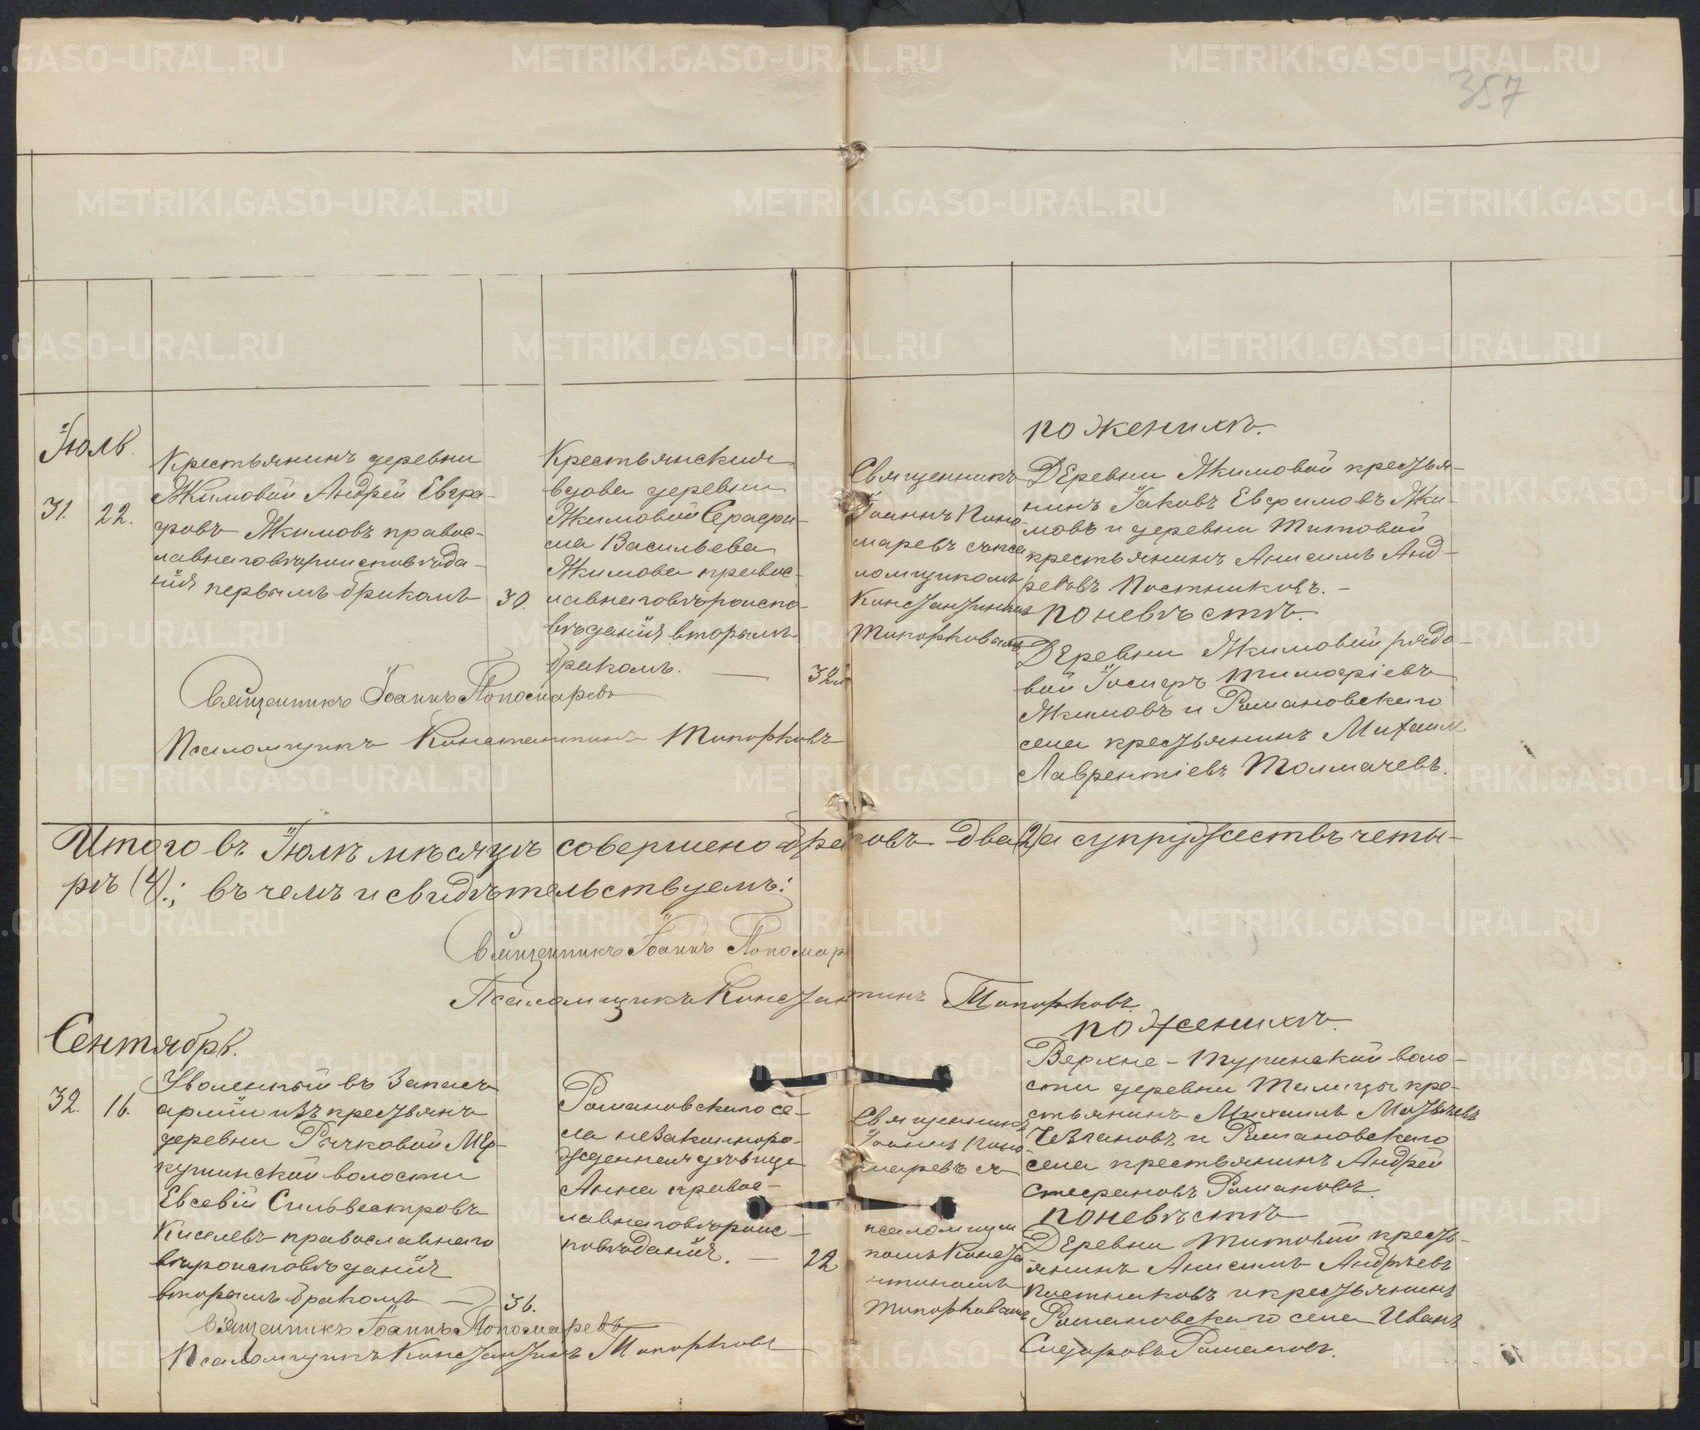 357
Іюль.
31. 22.
Крестьянинъ деревни
Якимовой Андрей Евгра-
фовъ Якимовъ правос-
лавнаго вѣроисповѣда-
нія первымъ бракомъ
30.
Крестьянская
вдова деревни
Якимовой Серафи-
ма Васильева
Якимова правос-
лавнаго вѣроиспо-
вѣданія вторымъ
бракомъ. —
32
Священникъ
Іоаннъ Поно-
маревъ съ пса-
ломщикомъ
Константиномъ
Топорковымъ
по женихѣ.
Деревни Якимовой кресть-
янинъ Іаковъ Евфимовъ Яки-
мовъ и деревни Титовой
крестьянинъ Анисимъ Анд-
реевъ Постниковъ. -
по невѣстѣ.
Деревни Якимовой рядо-
вой Іосифъ Тимофіевъ
Якимовъ и Романовскаго
села крестьянинъ Михаилъ
Лаврентіевъ Толмачевъ.
Священникъ Іоаннъ Пономаревъ
Псаломщикъ Константинъ Топорковъ
Итого въ Іюлѣ мѣсяцѣ совершено браковъ два (2) а супружествъ четы-
рѣ (4).; въ чемъ и свидѣтельствуемъ:
Священникъ Іоаннъ Пономар
Псаломщикъ Константинъ Топорковъ.
Сентябрь.
32. 16.
Уволенный въ Запасъ
арміи изъ крестьянъ
деревни Рычковой Мер-
кушинской волости
Евсевій Сильвестровъ
Киселевъ православнаго
вѣроисповѣданія
вторымъ бракомъ —
36.
Романовскаго се-
ла незаконноро-
жденная дѣвица
Анна правос-
лавнаго вѣроис-
повѣданія. —
22
Священникъ
Іоаннъ Поно-
маревъ съ
псаломщи
комъ Конста
нтиномъ
Топорковымъ
по женихѣ.
Верхне-Туринской воло-
сти деревни Талицы кре-
стьянинъ Михаилъ
и Романовскаго
села крестьянинъ Андрей
Стефановъ Романовъ.
по невѣстѣ
Деревни Титовой кресть-
янинъ Анисимъ Андреевъ
Постниковъ и крестьянинъ
Романовскаго села Иванъ
Сидоровъ Романовъ.
Священникъ Іоаннъ Пономаревъ
Псаломщикъ Константинъ Топорковъ
METRIKI.GASO-URAL.RU